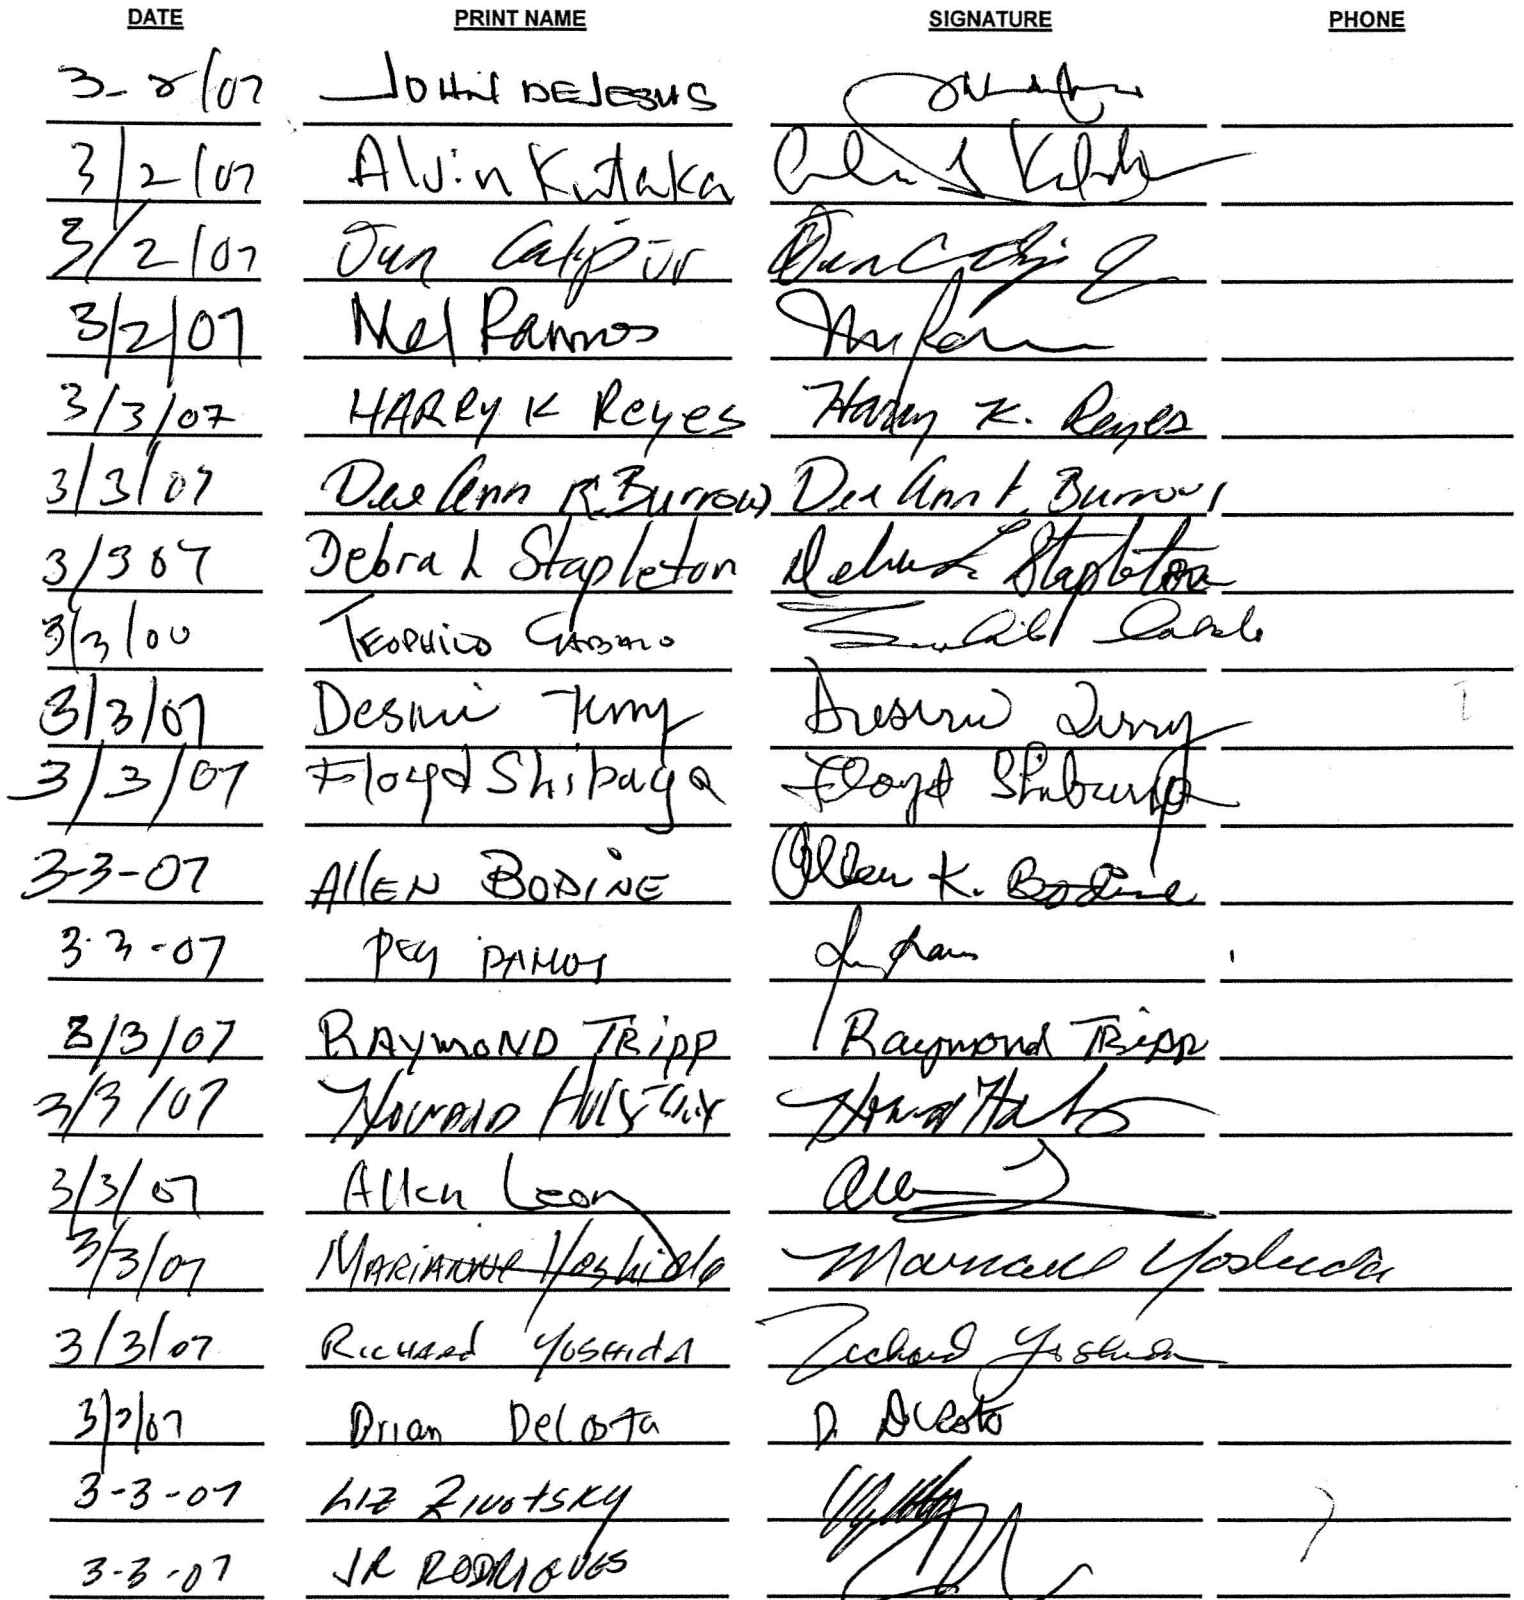 DATE PRINT NAME SIGNATURE PHONE
3-2/07 JOHN DEJESUS
3/2/07 Alvin Kutaka
3/2/07 Jun Calip Jr
3/2/07 Mel Ramos
3/3/07 HARRY K Reyes Harry K. Reyes
3/3/07 Dee Ann K. Burrows Dee Ann K. Burrows
3/3 07 Debra L Stapleton Debra L Stapleton
3/3/00 TEOPHILO
3/3/07 Desiree Terry Desiree Terry
3/3/07 Floyd Shibuya Floyd Shibuya
3-3-07 AllEN BODINE Allen K. Bodine
3-3-07
3/3/07 RAYMOND TRIPP Raymond TRipp
3/3/07 HOWARD
3/3/07 Allen Leong
3/3/07 MARIANNE Yoshida Marianne Yoshida
3/3/07 RICHARD YOSHIDA Richard Yoshida
3/3/07 Brian DeCosta
3-3-07 LIZ ZIVOTSKY
3-3-07 JR RODRIGUES